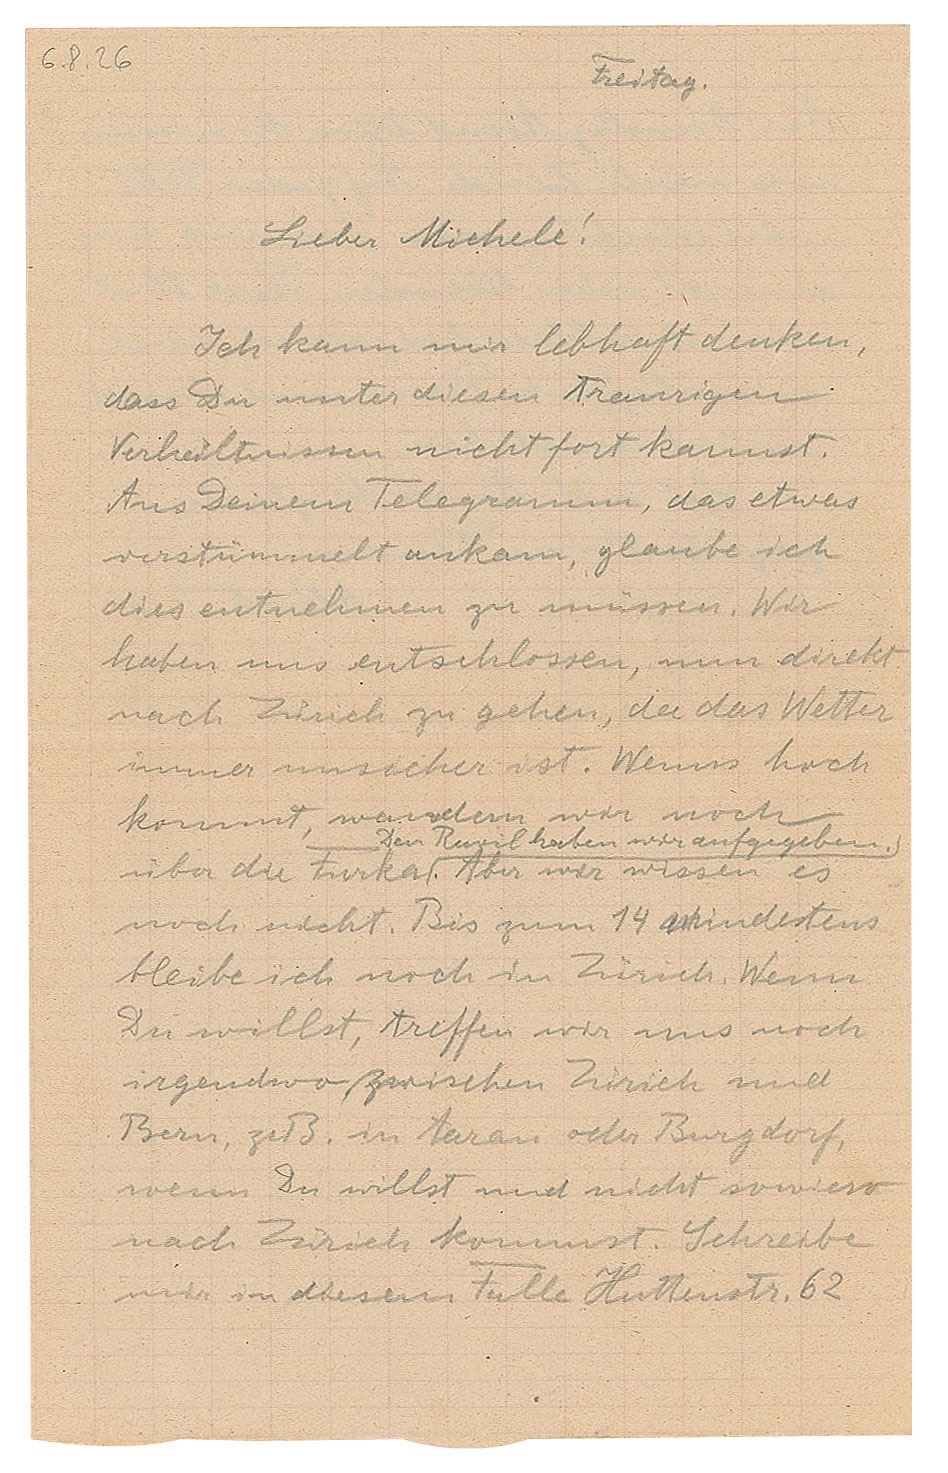 6.8.26
Freitag.
Lieber Michele!
Ich kann mir lebhaft denken,
dass Du unter diesen traurigen
Verhältnissen nicht fort kannst.
Aus Deinem Telegramm, das etwas
verstümmelt ankam, glaube ich
dies entnehmen zu müssen. Wir
haben uns entschlossen, nun direkt
nach Zürich zu gehen, da das Wetter
immer unsicher ist. Wenns hoch
kommt, wandern wir noch
Den Rawil haben wir aufgegeben.)
über die Furka(. Aber wir wissen es
noch nicht. Bis zum 14 mindestens
bleibe ich noch in Zürich. Wenn
Du willst, treffen wir uns noch
irgendwo zwischen Zürich und
Bern, z.B. in Aarau oder Burgdorf,
wenn Du willst und nicht sowieso
nach Zürich kommst. Schreibe
mir in diesem Falle Huttenstr. 62